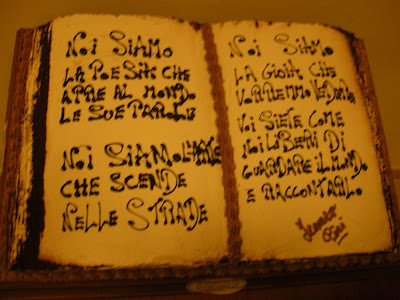 Noi Siamo
la Poesia che
apre al mondo
le sue parole
Noi Siamo l'arte
che scende
nelle strade
Noi Siamo
la gioia che
vorremmo vedere
Voi siete come
noi liberi di
guardare il mondo
e raccontarlo